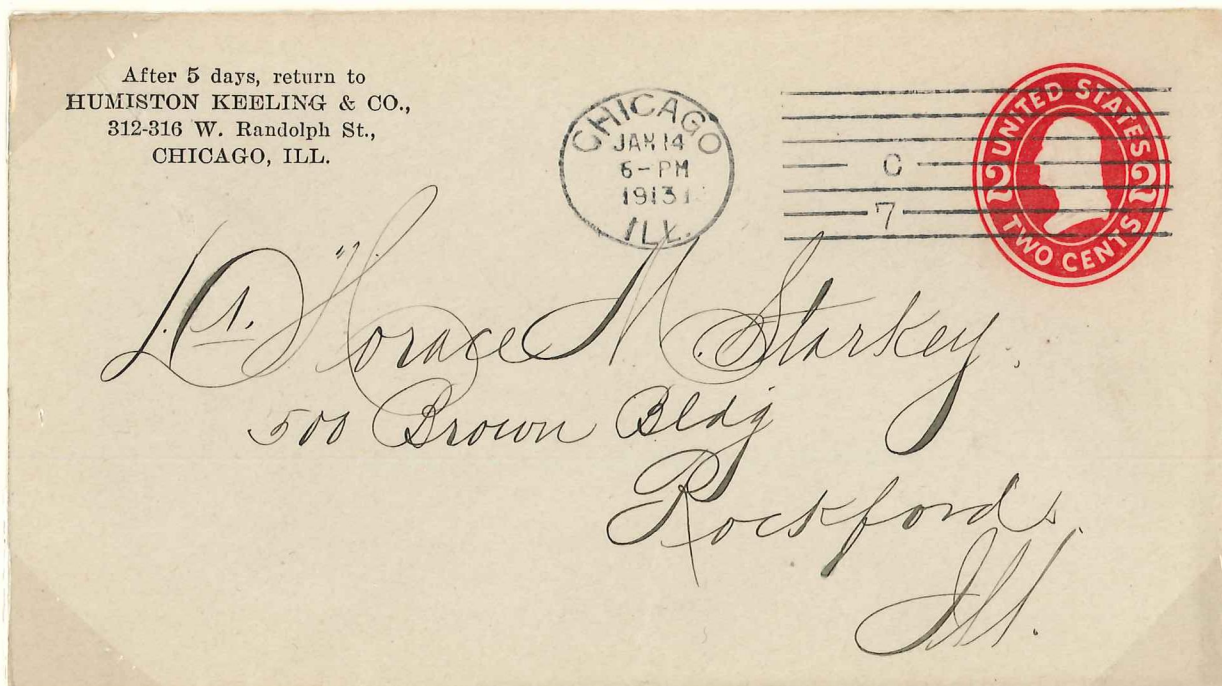 After 5 days, return to
HUMISTON KEELING & CO.,
312-316 W. Randolph St.,
CHICAGO, ILL.
CHICAGO
JAN 14
6-PM
1913
ILL.
C
7
UNITED STATES
2 2
TWO CENTS
Dr. Horace M. Starkey.
500 Brown Bldg
Rockford.
Ill.